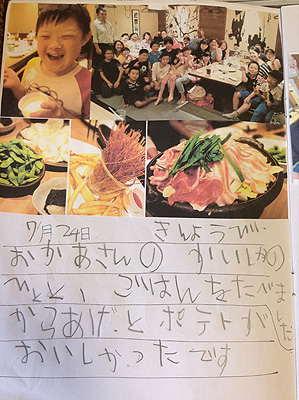 7月24日 きんようび
おかあさんの すいいかの
ひとと、ごはんをたべま
した
からあげとポテトが
おいしかったです